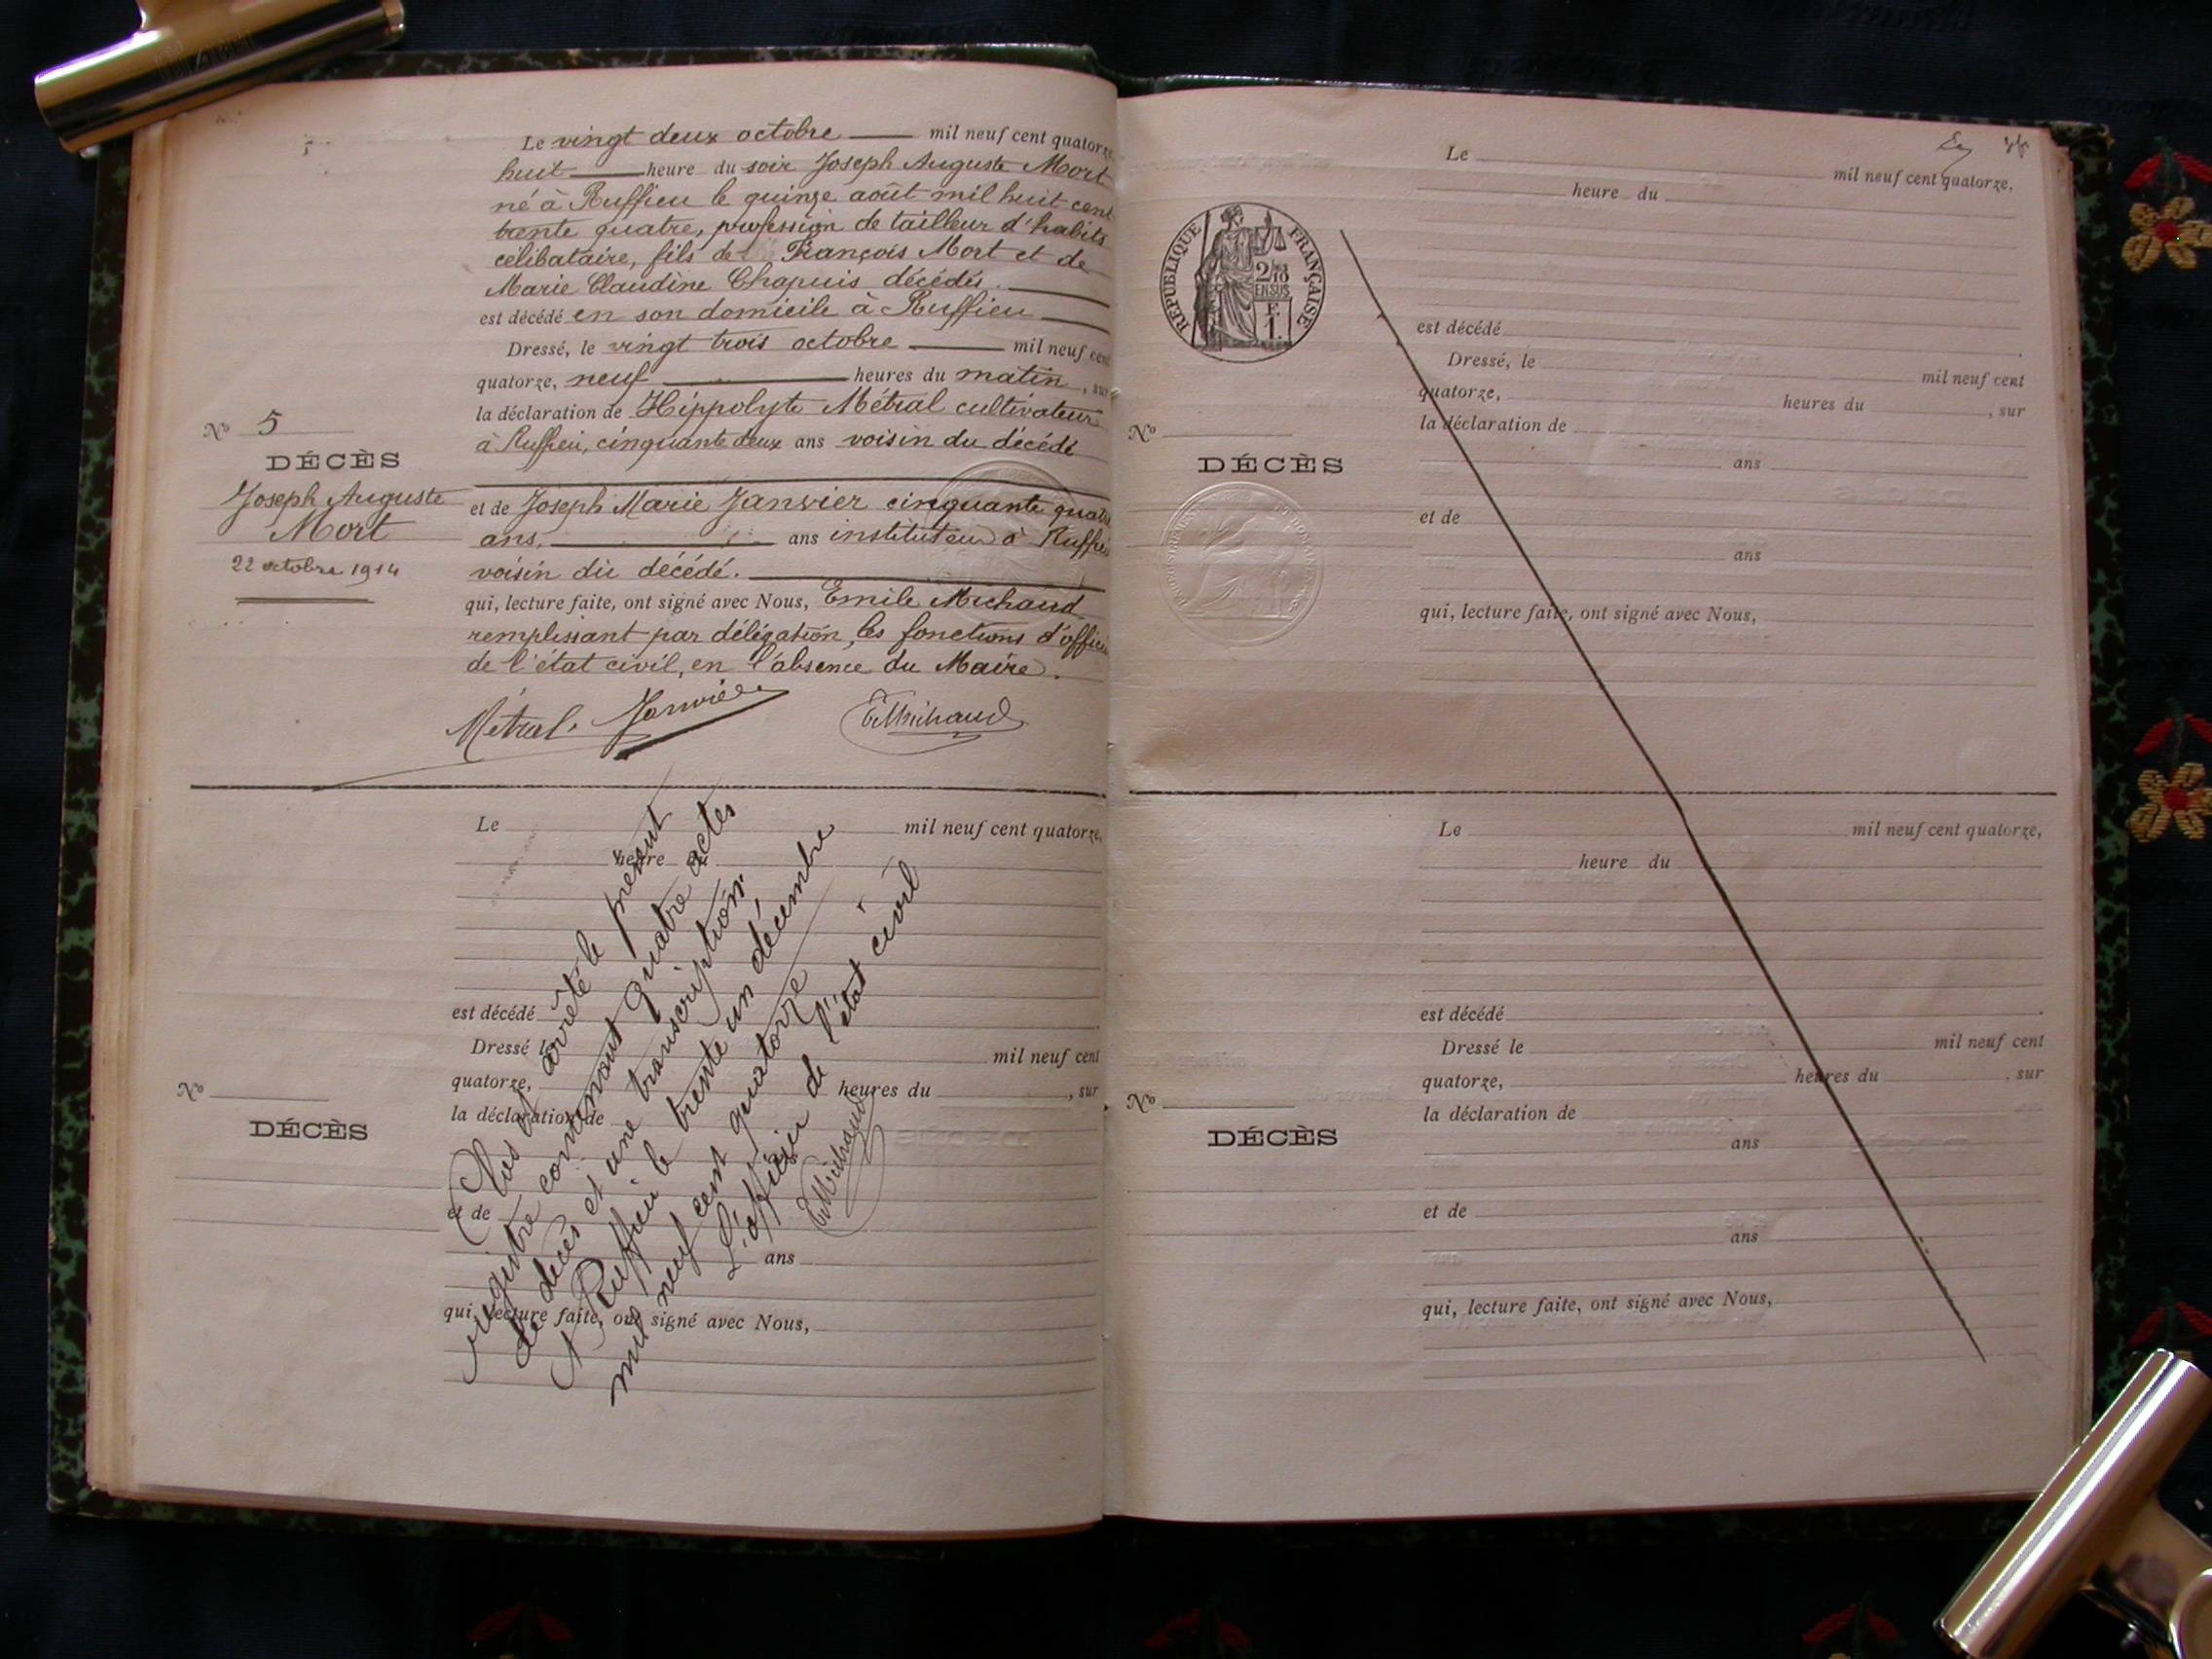 Le vingt deux octobre mil neuf cent quatorze,
huit heure du soir Joseph Auguste Mort
né à Ruffieu le quinze août mil huit cent
trente quatre, profession de tailleur d'habits
célibataire, fils de François Mort et de
Marie Claudine Chapuis décédés.
est décédé en son domicile à Ruffieu
Dressé, le vingt trois octobre mil neuf cent
quatorze, neuf heures du matin, sur
la déclaration de Hippolyte Métral cultivateur
à Ruffieu, cinquante deux ans voisin du décédé
et de Joseph Marie Janvier cinquante quatre
ans, ans instituteur à Ruffieu
voisin du décédé.
qui, lecture faite, ont signé avec Nous, Emile Michaud
remplissant par délégation, les fonctions d'officier
de l'état civil, en l'absence du Maire.
Métral Janvier EMichaud
No 5
DÉCÈS
Joseph Auguste
Mort
22 octobre 1914
Le mil neuf cent quatorze,
heure du
est décédé
Dressé le mil neuf cent
quatorze, heures du , sur
la déclaration de
et de
ans
qui, lecture faite, ont signé avec Nous,
No
DÉCÈS
Clos et arrêté le présent
registre contenant quatre actes
de décès et une transcription.
A Ruffieu le trente un décembre
mil neuf cent quatorze
L'officier de l'état civil
EMichaud
Le mil neuf cent quatorze,
heure du
RÉPUBLIQUE FRANÇAISE
2/10
EN SUS
F.
1.
est décédé
Dressé, le mil neuf cent
quatorze, heures du , sur
la déclaration de
ans
et de
ans
qui, lecture faite, ont signé avec Nous,
No
DÉCÈS
Le mil neuf cent quatorze,
heure du
est décédé
Dressé le mil neuf cent
quatorze, heures du , sur
la déclaration de
ans
et de
ans
qui, lecture faite, ont signé avec Nous,
No
DÉCÈS